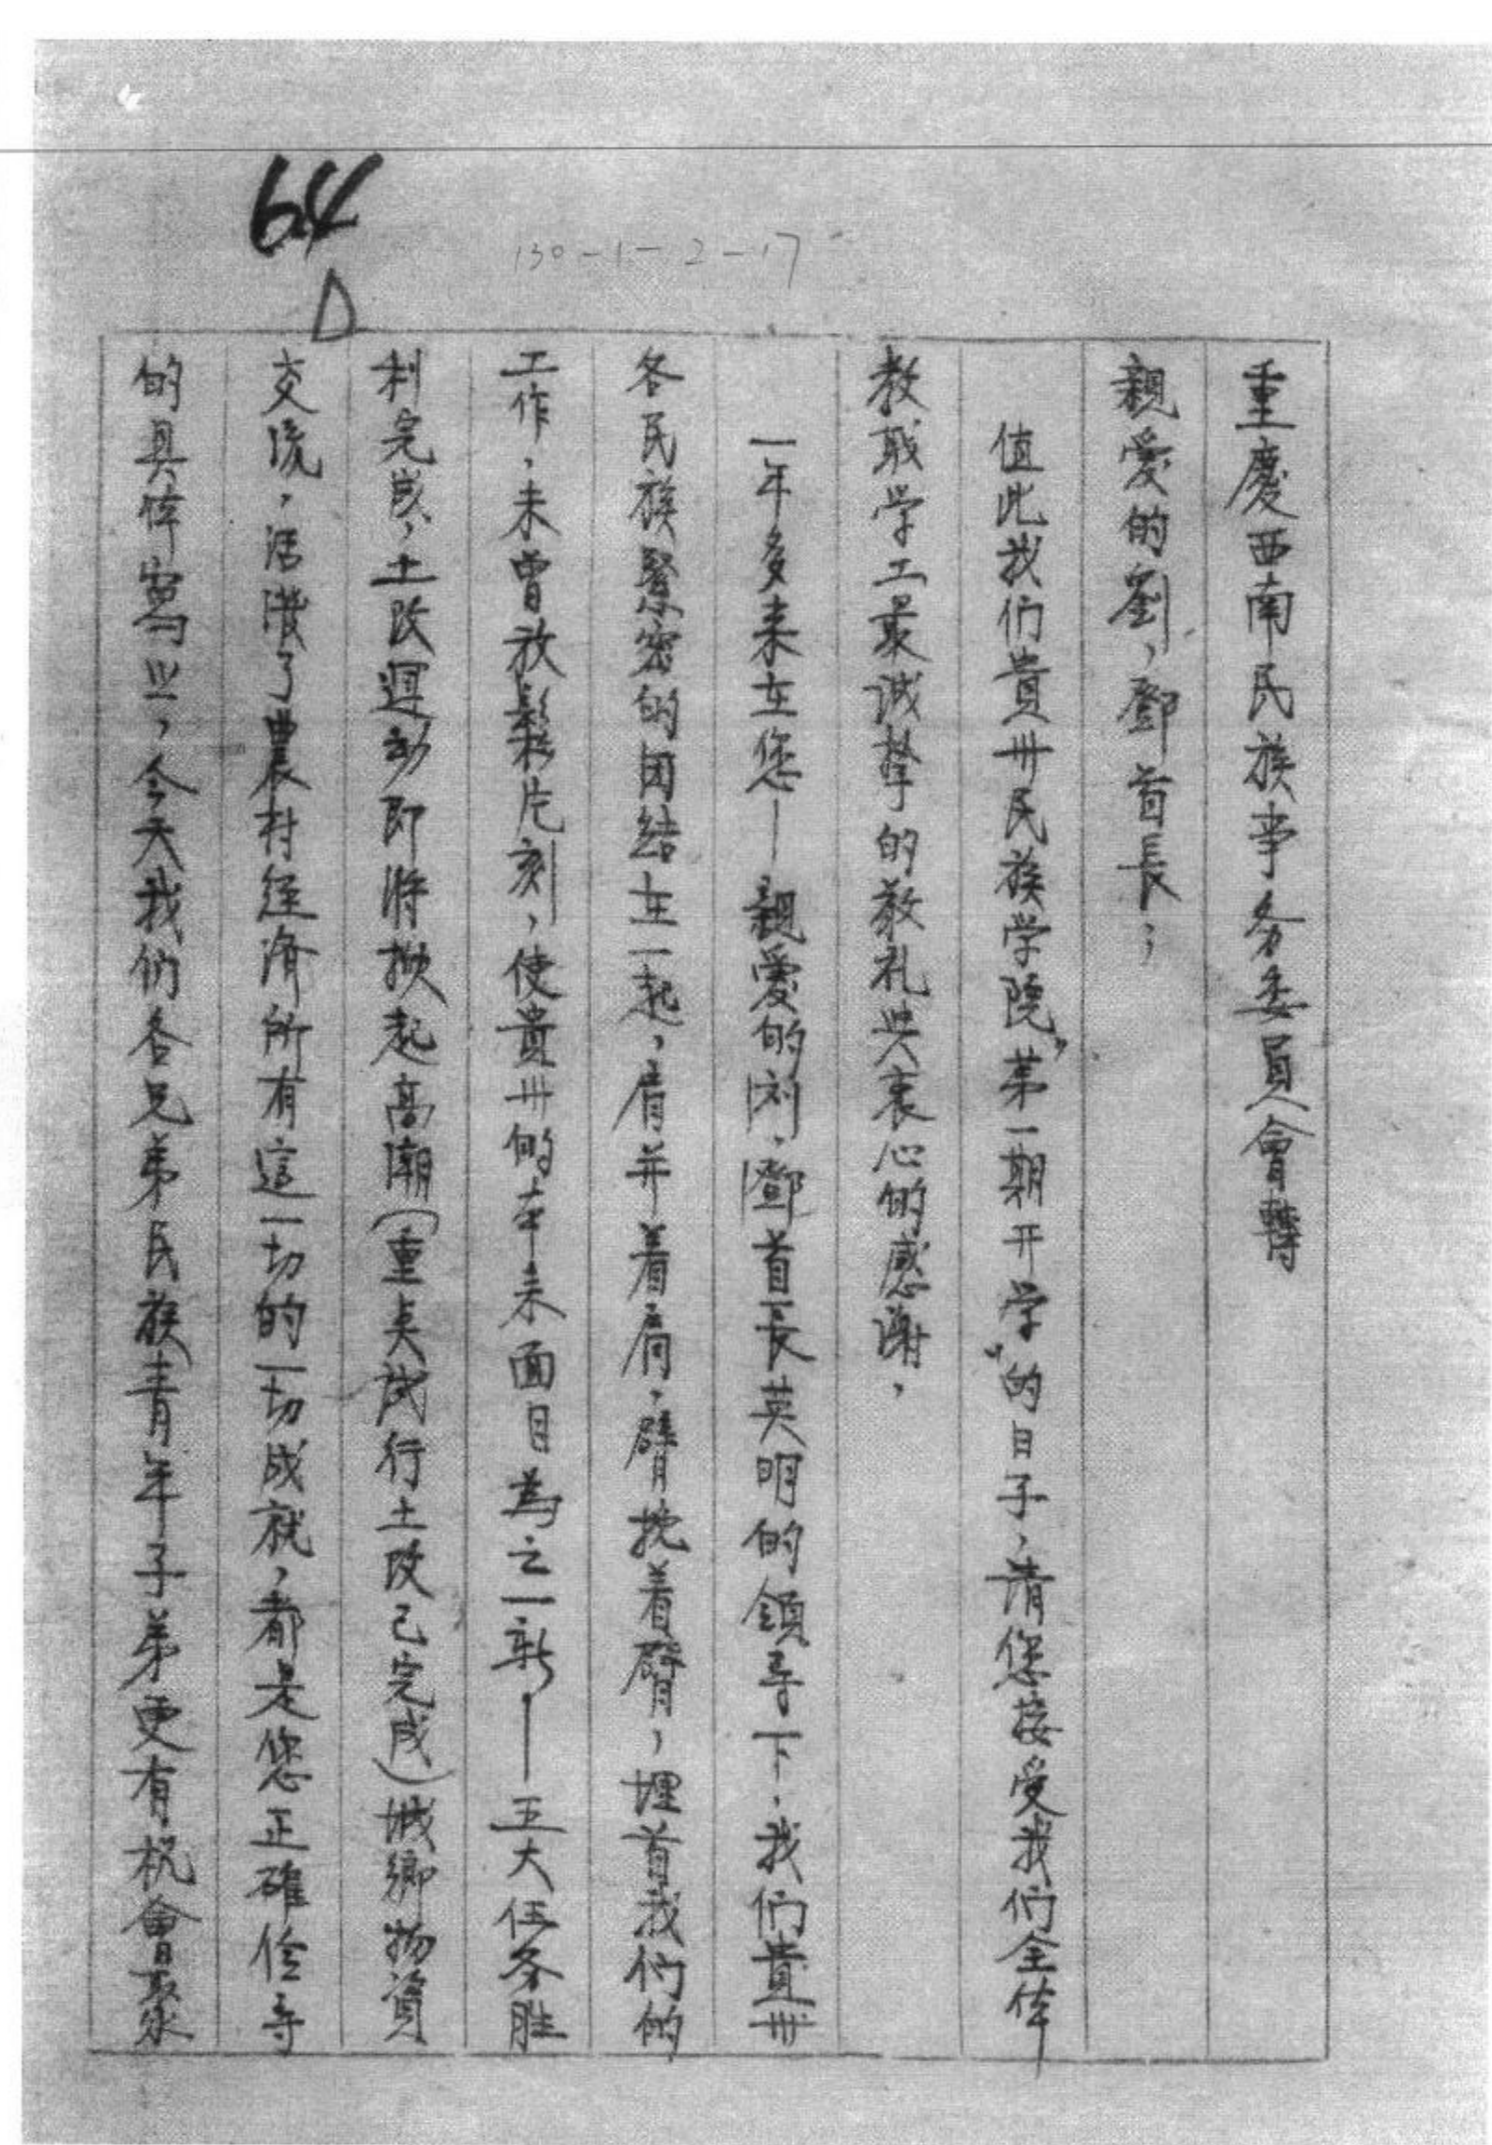 64
130-1-2-17
D
重慶西南民族事务委員會轉
親爱的劉，鄧首長；
值此我们貴州民族学院"第一期开学"的日子，请您接受我们全体
教职学工最诚挚的敬礼与衷心的感谢，
一年多来在您—親愛的刘、鄧首長英明的領导下，我们貴州
各民族緊密的团结在一起，肩并着肩，臂挽着臂，埋首我们的
工作，未曾放鬆片刻，使貴州的本来面目為之一新！—五大任务胜
利完成，土改運动即將掀起高潮(重点试行土改已完成)城鄉物資
交流，活潑了農村经济所有這一切的一切成就，都是您正確領导
的具体寫照，今天我们各兄弟民族青年子弟更有机會聚